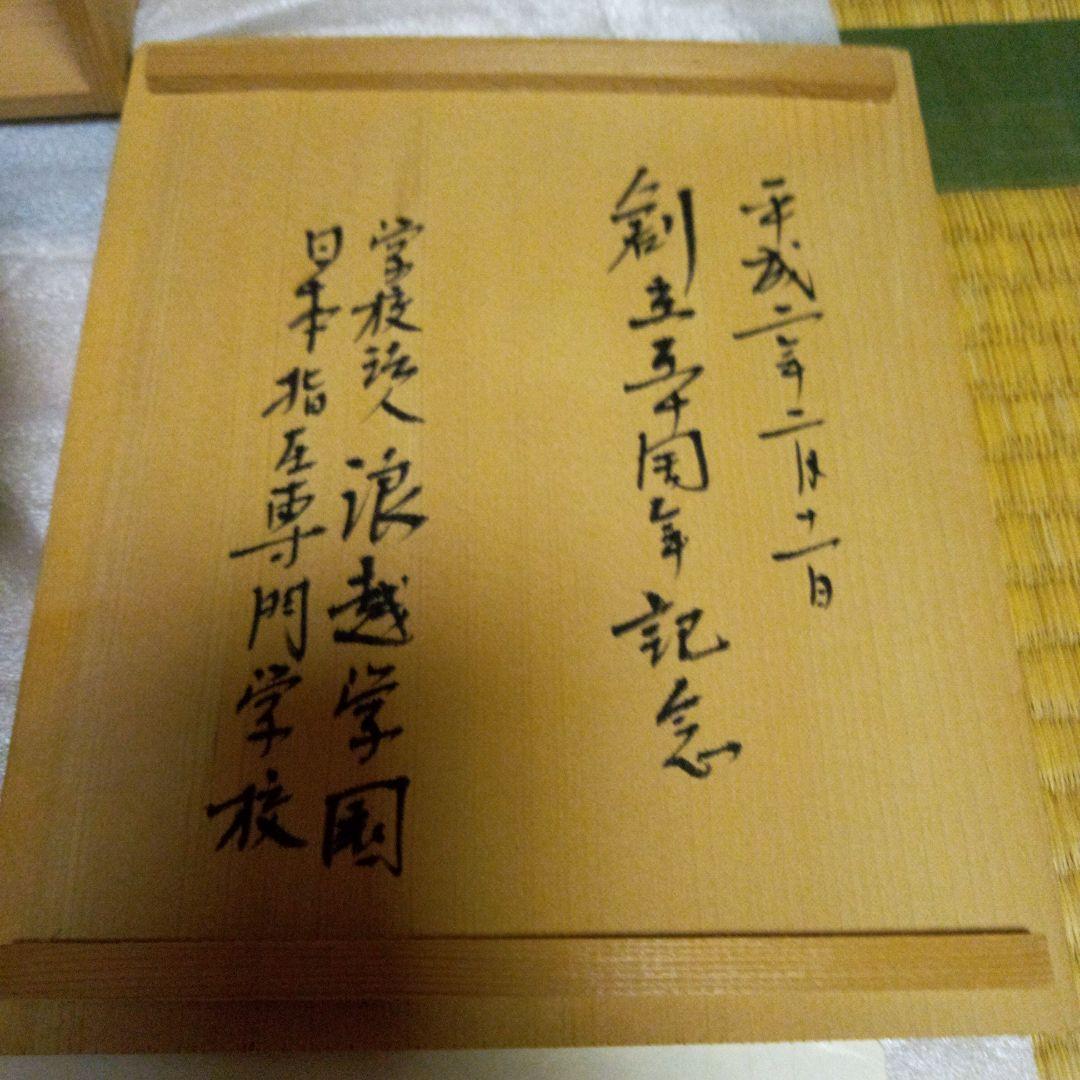 平成二年二月十一日
創立五十周年記念
学校法人 浪越学園
日本指圧専門学校